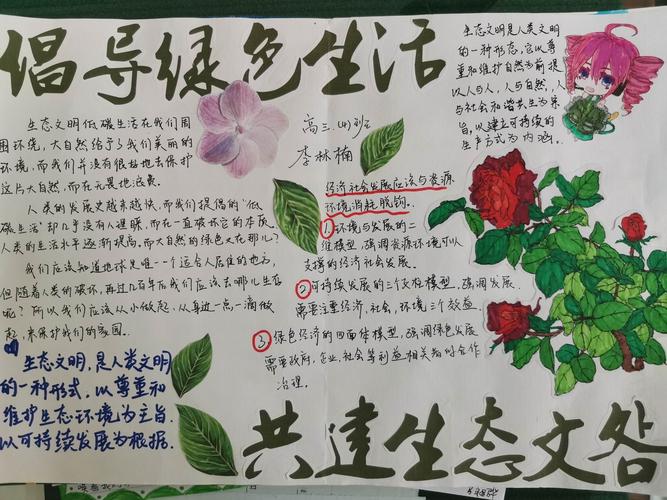 倡导绿色生活
生态文明是人类文明
的一种形态,它以尊
重和维护自然为前提
以人与人,人与自然,人
与社会和谐共生为宗
旨,以建立可持续的
生产方式为内涵。
高三.(4)班
李林楠
生态文明低碳生活在我们周
围环境,大自然给予了我们美丽的
环境,而我们并没有很好地去保护
这片大自然,而在无畏地浪费。
人类的发展越来越快,而我们提倡的‘低
碳生活’却几乎没有人理睬,而在一直破坏它的本质
人类的生活水平逐渐提高,而大自然的绿色又在那儿?
我们应该知道地球是唯一个适合人居住的地方,
但随着人类的破坏,再过几百年后我们应该去哪儿生存
呢?所以我们应该从小做起,从身边一点一滴做
起,来保护我们的家园.
生态文明,是人类文明
的一种形式,以尊重和
维护生态环境为主旨.
以可持续发展为根据.
经济社会发展应该与资源
环境消耗脱钩.
1 环境与发展的二
维模型,强调资源环境可以
支撑的经济社会发展.
2 可持续发展的三支柱模型,强调发展
需要注重经济,社会,环境三个效益
3 绿色经济的四面体模型,强调绿色发展
需要政府,企业,社会等利益相关者的合作
治理.
共建生态文明